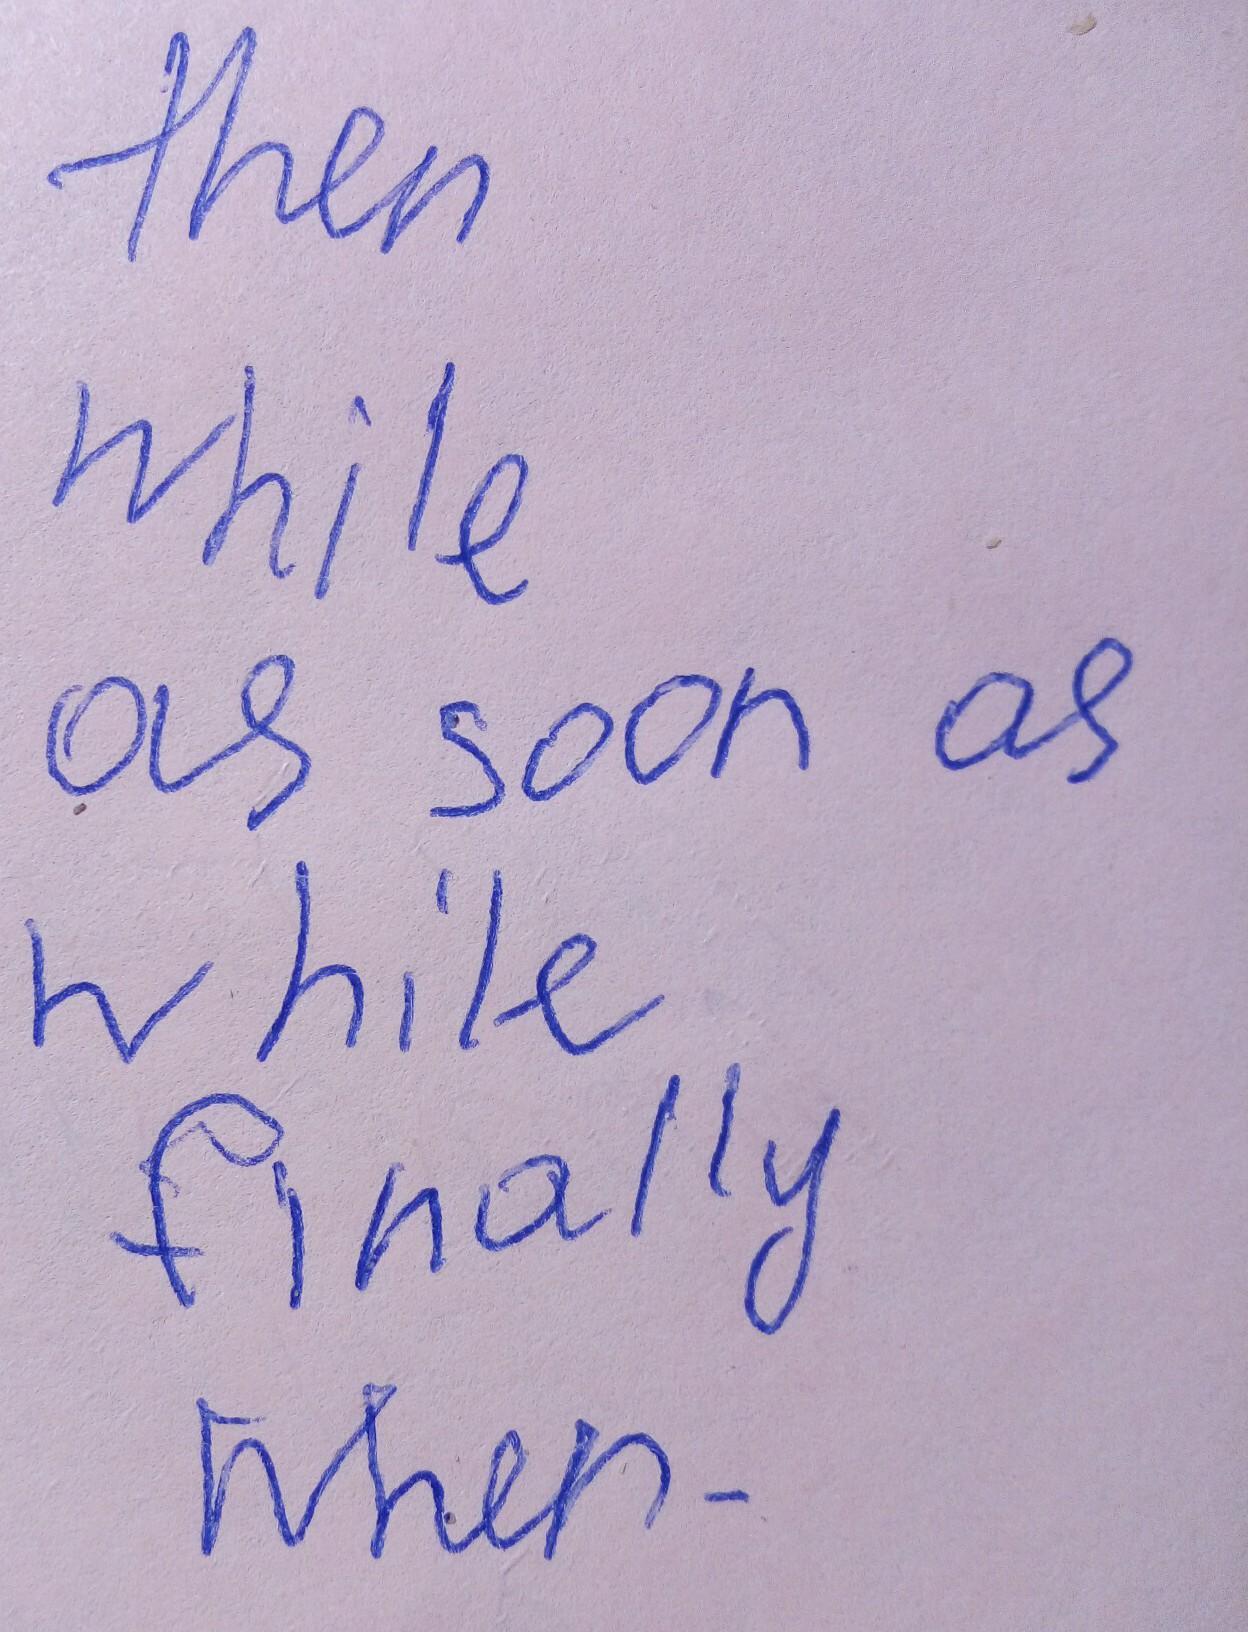 then
while
as soon as
while
finally
when-